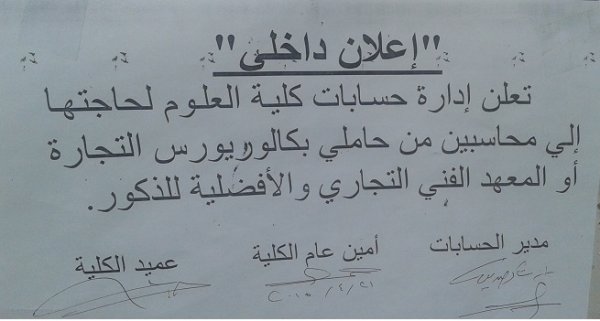 "إعلان داخلي"
تعلن إدارة حسابات كلية العلوم لحاجتها
إلي محاسبين من حاملي بكالوريورس التجارة
أو المعهد الفني التجاري والأفضلية للذكور.
مدير الحسابات أمين عام الكلية عميد الكلية